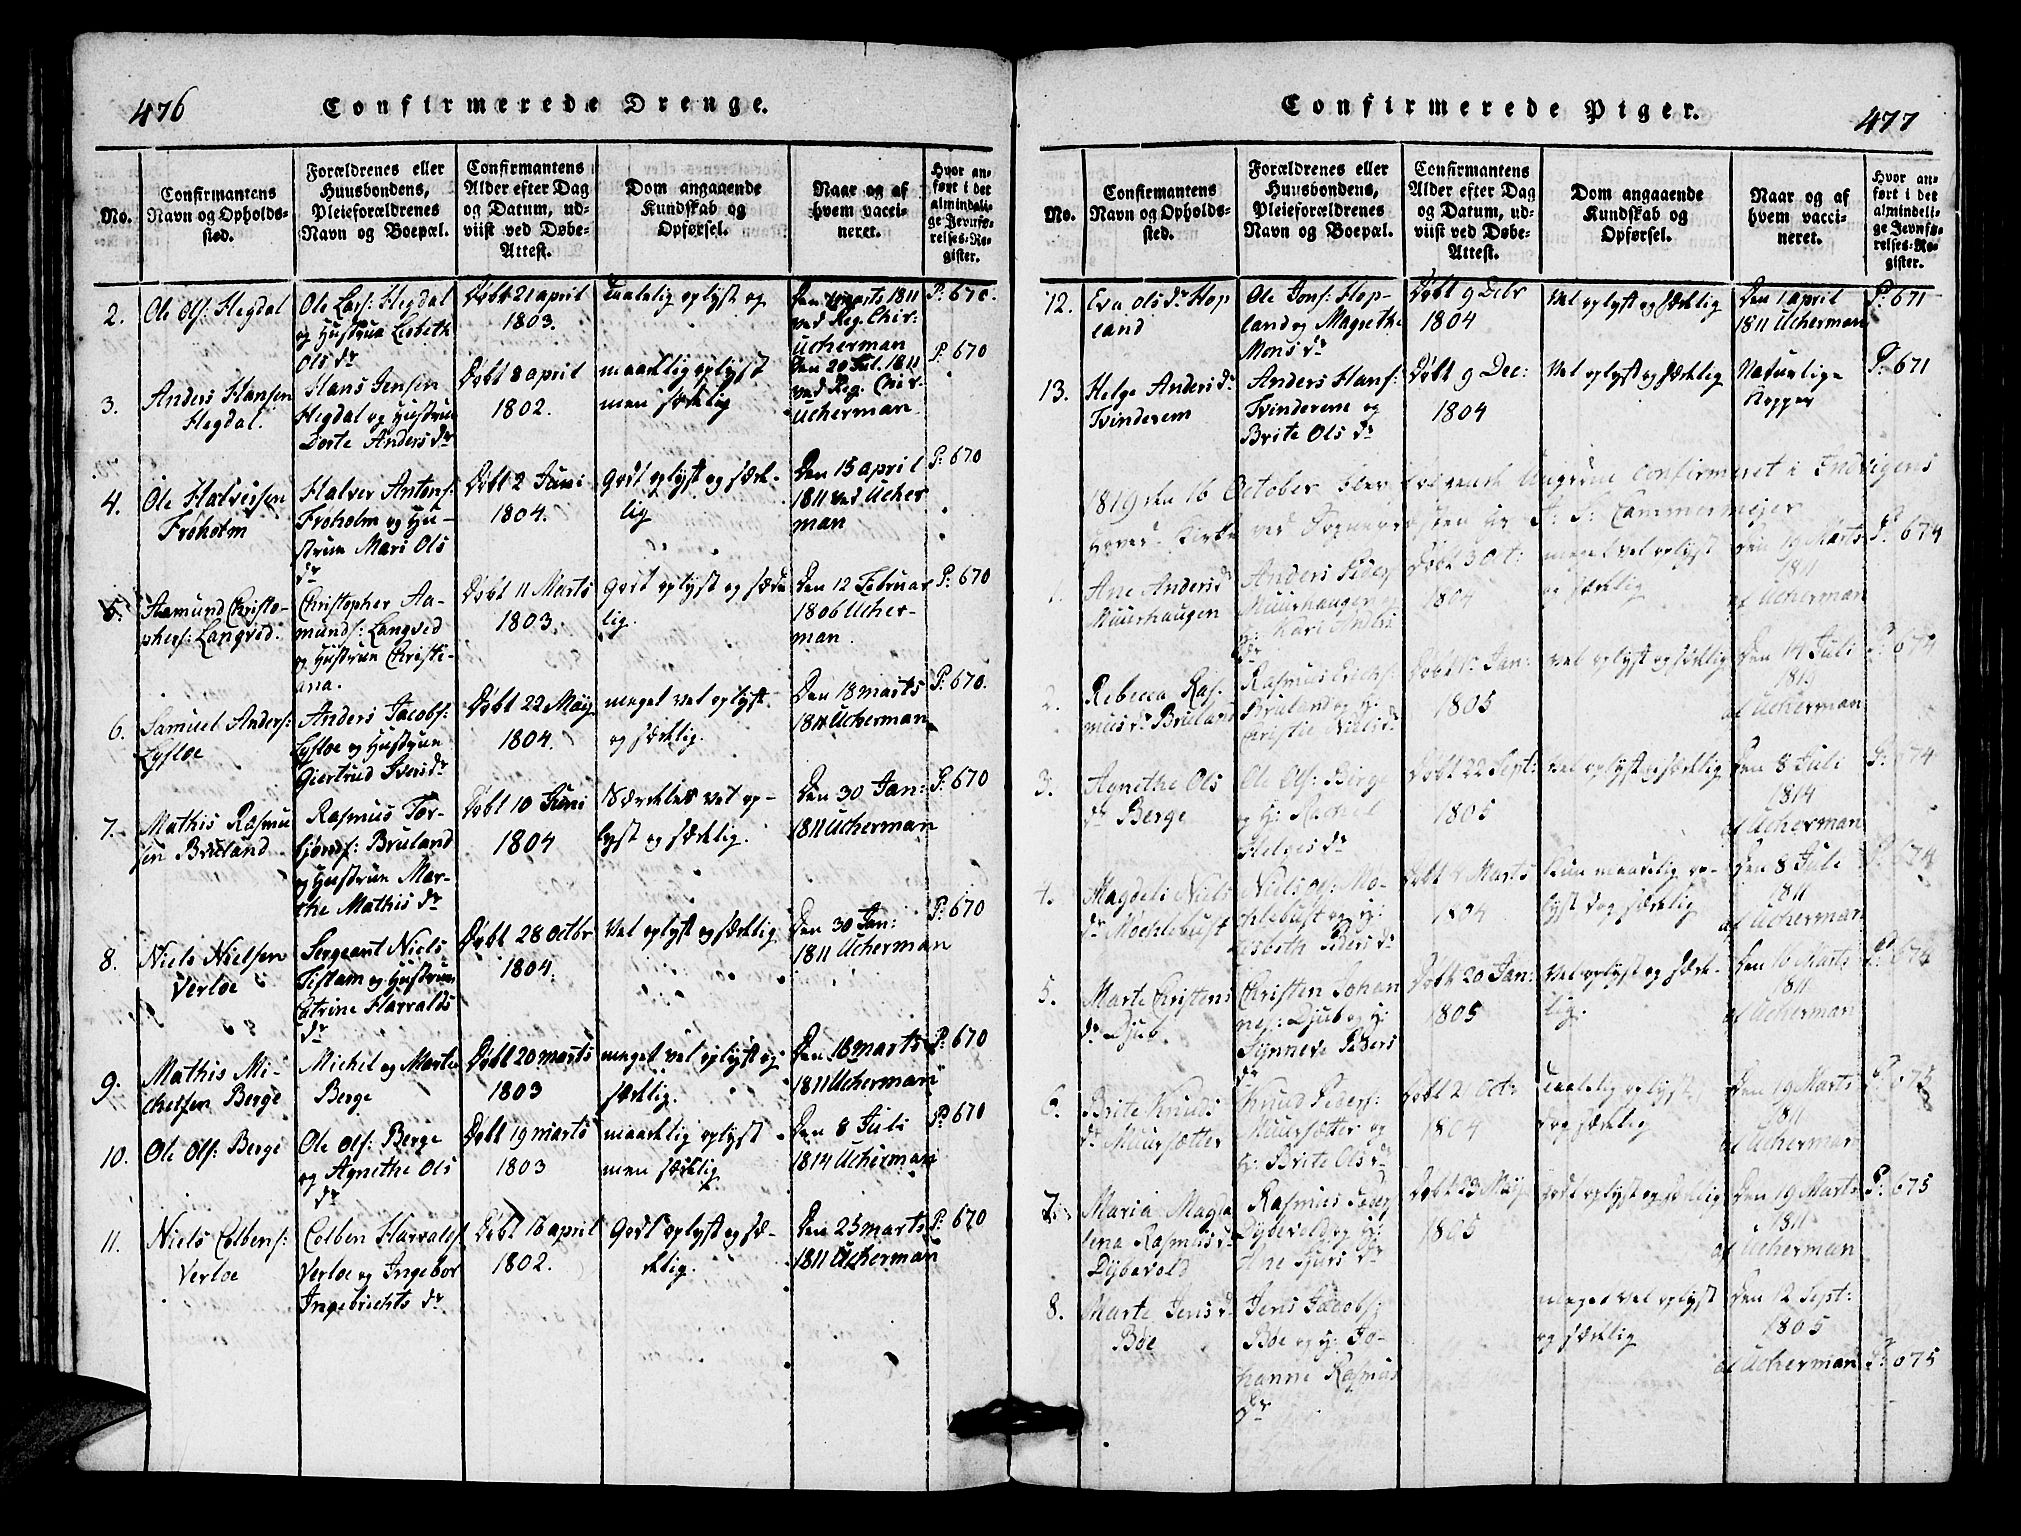 476
Confirmerede Drenge.
No.
Confirmantens Navn og Opholdssted.
Forældrenes eller Huusbondens, Pleieforældrenes Navn og Boepæl.
Confirmantens Alder efter Dag og Datum, udviist ved Døbe-Attest.
Dom angaaende Kundskab og Opførsel.
Naar og af hvem vaccineret.
Hvor anført i det almindelige Jevnførelses-Register.
2. Ole Ols: Hegdal
Ole Lars: Hegdal og Hustrue Lisbeth Ols dr
Døbt 21 april 1803.
Taalelig oplyst og
marts 1811 ved Reg. Chir: Ucherman
P: 670.
3. Anders Hansen Hegdal.
Hans Jensen Hegdal og Hustrue Dorte Anders dr
Døbt 8 april 1802.
maadelig oplyst men sædelig
Den 20 Jul. 1811 ved Reg. Chir: Ucherman.
P: 670
4. Ole Halversen Froholm
Halver Antons: Froholm og Hustrue Mari Ols dr
Døbt 2 Juni 1804.
Godt oplyst og sædelig
Den 15 april 1811 ved Ucherman
P: 670
5. Aamund Christophers: Langved.
Christopher Aamunds: Langved og Hustrue Christiana.
Døbt 11 Marts 1803.
Godt oplyst og sædelig.
Den 12 Februar 1806 Ucherman.
P: 670
6. Samuel Anders: Lysloe
Anders Jacobs: Lysloe og Hustrue Giertrud Ivers dr
Døbt 22 May 1804.
meget vel oplyst og sædelig.
Den 18 marts 1811 Ucherman
P: 670.
7. Mathis Rasmusen Bruland
Rasmus Torbjørns: Bruland og Hustrue Marthe Mathis dr
Døbt 10 Juni 1804
Særdeles vel oplyst og sædelig.
Den 30 Jan: 1811 Ucherman
P: 670
8. Niels Nielsen Verloe
Sergeant Niels Tislam og Hustrue Catrine Harvalds dr
Døbt 28 octbr 1804.
Vel oplyst og sædelig
Den 30 Jan: 1811 Ucherman
P: 670
9. Mathis Michelsen Berge
Michel og Marte Berge
Døbt 20 marts 1803
meget vel oplyst og sædelig.
Den 18 marts 1811 Ucherman
P: 670
10. Ole Ols: Berge
Ole Ols: Berge og Agnethe Ols dr
Døbt 19 marts 1803
maadelig oplyst men sædelig
Den 8 Juli 1814 Ucherman
P: 670
11. Niels Colbens: Verloe
Colben Harvalds Verloe og Ingebor Ingebrichts dr
Døbt 16 april 1802.
Godt oplyst og sædelig.
Den 25 marts 1811 Ucherman
P: 670
Confirmerede Piger.
477
No.
Confirmantens Navn og Opholdssted.
Forældrenes eller Huusbondens, Pleieforældrenes Navn og Boepæl.
Confirmantens Alder efter Dag og Datum, udviist ved Døbe-Attest.
Dom angaaende Kundskab og Opførsel.
Naar og af hvem vaccineret.
Hvor anført i det almindelige Jevnførelses-Register.
12. Eva Ols dr Hopland
Ole Jons: Hopland og Magrethe Mons dr
Døbt 9 Debr 1804
Vel oplyst og sædelig
Den 1 april 1811 Ucherman
P: 671
13. Helge Anders dr Tvinderem
Anders Hans: Tvindereme og Brite Ols dr
Døbt 9 Dec: 1804
Vel oplyst og sædelig
Naturlige Kopper
P: 671
1819 den 16 October blev Ungdom confirmeret i Indvigens hoved-Kirke ved Sognepræsten Hr Cammermejer
1. Ane Anders dr Muurhaugen
Anders Peders Muurhaugen og H: Kari Anders dr
Døbt 3 Oct: 1804
meget vel oplyst og sædelig
Den 19 Marts 1811 af Ucherman
P: 674
2. Rebecca Rasmus dr Bruland
Rasmus Erichs: Bruland og H: Christie Niels dr
Døbt Jan: 1805
Vel oplyst og sædelig
Den 14 Juli af Ucherman
P: 674
3. Agnethe Ols dr Berge
Ole Ols: Berge og H: Rachel Helges dr
Døbt 22 Sept: 1805
Vel oplyst og sædelig
Den 8 Juli 1814 af Ucherman
P: 674
4. Magdeli Niels dr Mochlebust
Niels Mochlebust og H: Lisbeth Peders dr
Døbt Marts 1804
Kun maadelig oplyst dog sædelig
Den 8 Juli 1811 af Ucherman
P: 674
5. Marte Christens dr Djub.
Christen Johannes: Djub og H: Synneve Peders dr
Døbt 20 Jan: 1805
Vel oplyst og sædelig.
Den 16 Marts 1811 af Ucherman
P: 674
6. Brite Knuds dr Muursætter
Knud Peders: Muursætter og H: Brite Ols dr
Døbt 2 Oct: 1804
Taalelig oplyst, dog sædelig
Den 19 Marts 1811 af Ucherman
P: 675
7. Maria Magdalena Rasmus dr Dybevold
Rasmus Peders Dybevold og H: Ane Sjurs dr
Døbt 23 May 1805
Godt oplyst og sædelig
Den 19 Marts 1811 af Ucherman
P: 675
8. Marte Jens dr Bøe
Jens Jacobs: Bøe og H: Johanne Rasmus dr
meget vel oplyst og sædelig
Den 12 Sept: 1805 af Ucherman
P: 675